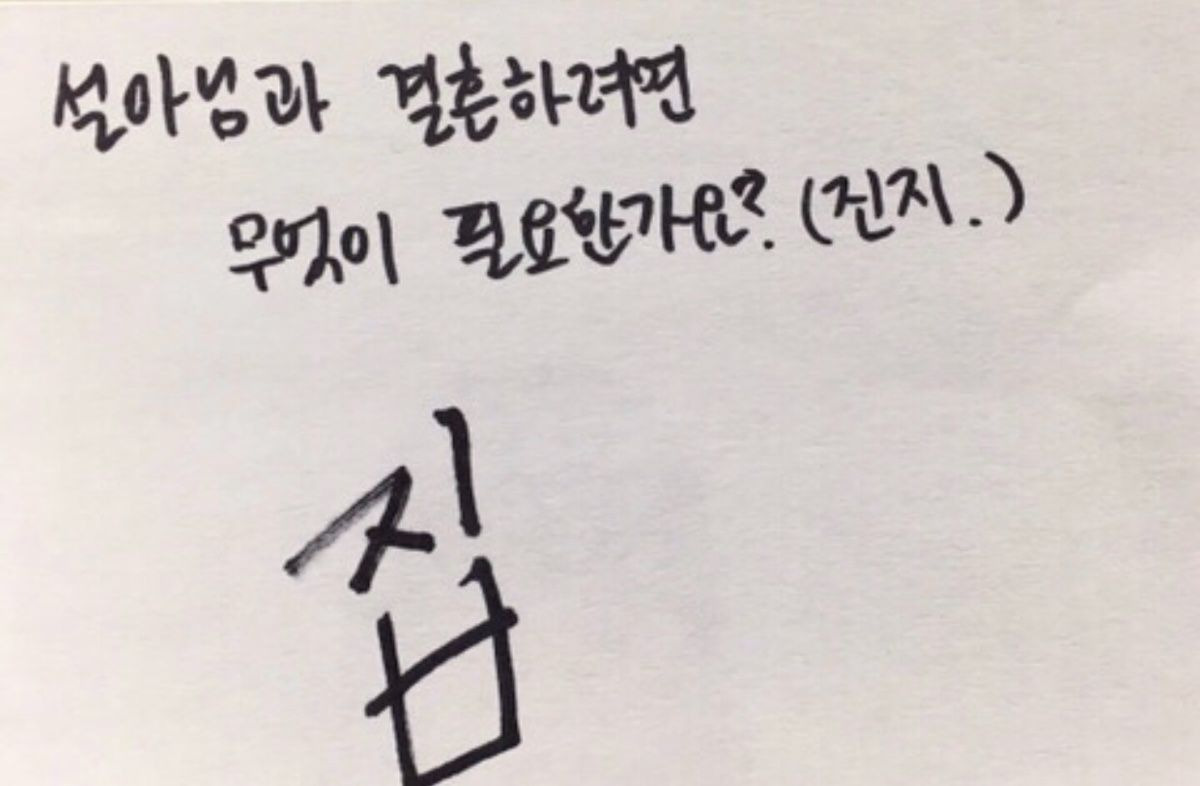 설아님과 결혼하려면
무엇이 필요한가요? (진지.)
집